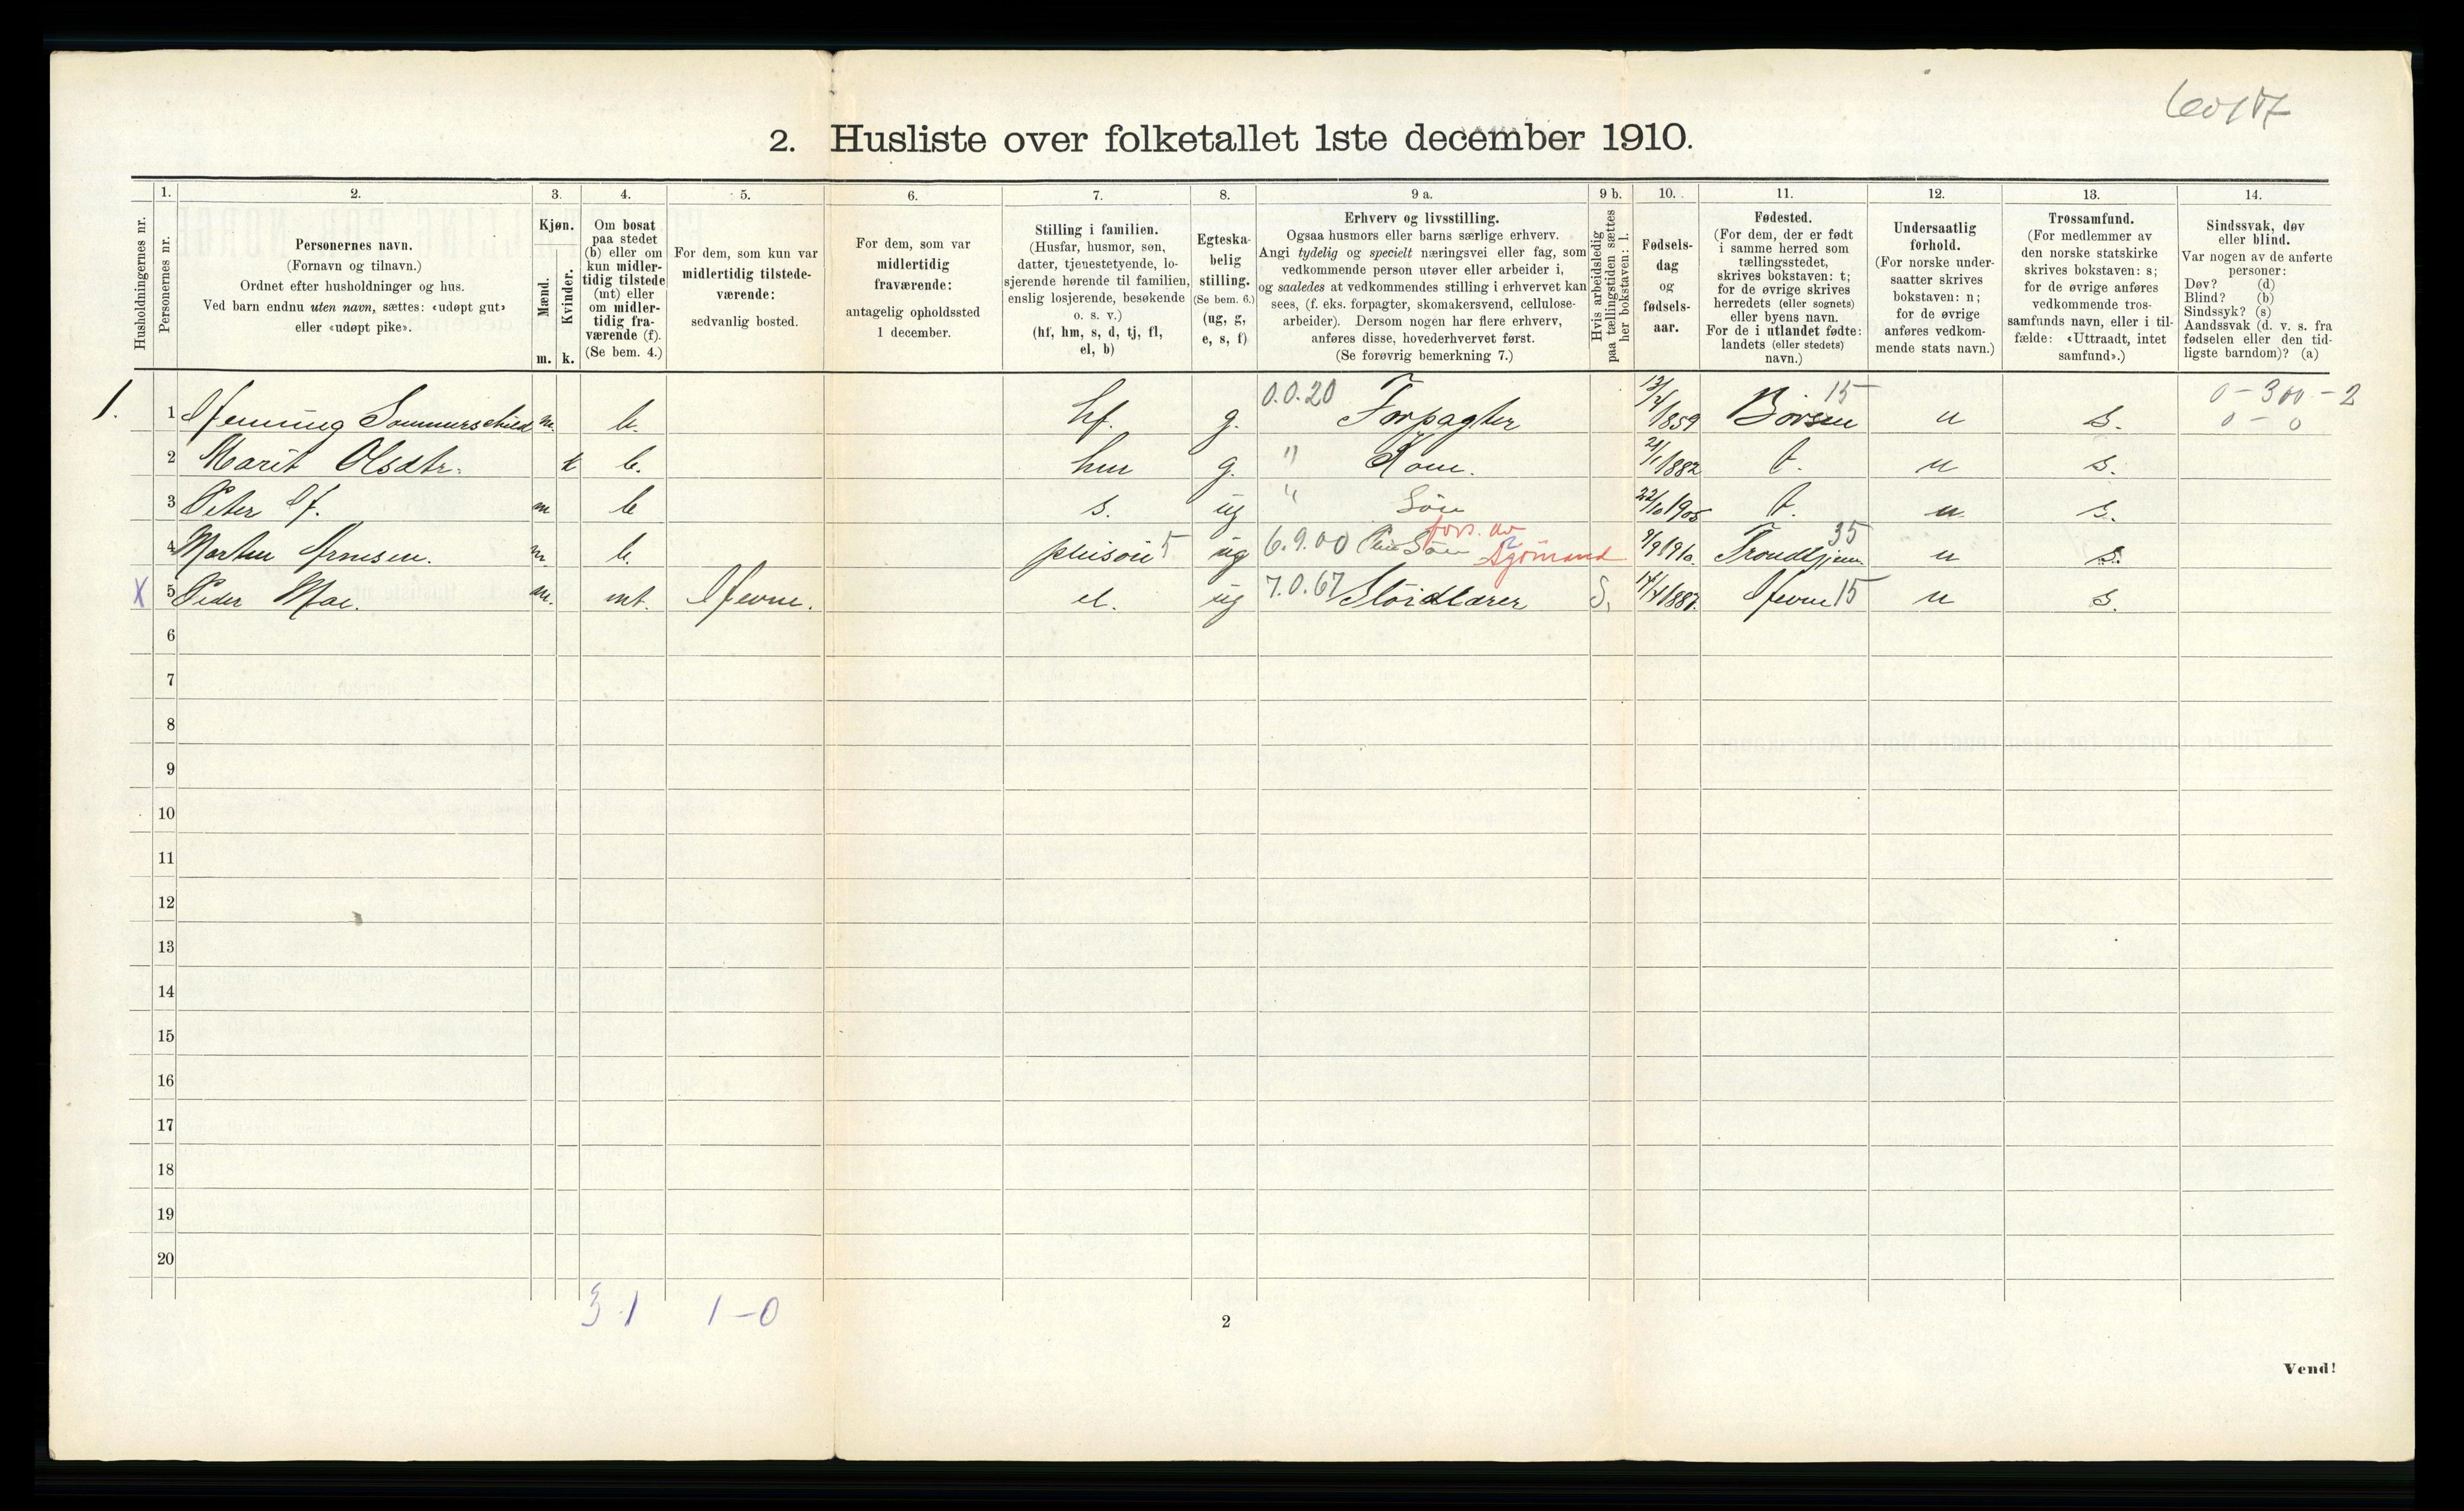 2. Husliste over folketallet 1ste december 1910.
1. 2. 3. 4. 5. 6. 7. 8. 9 a. 9 b. 10. 11. 12. 13. 14.
Husholdningernes nr.
Personernes nr.
Personernes navn.
(Fornavn og tilnavn.)
Ordnet efter husholdninger og hus.
Ved barn endnu uten navn, sættes: «udøpt gut»
eller «udøpt pike».
Kjøn.
Mænd.
Kvinder.
m. k.
Om bosat
paa stedet
(b) eller om
kun midler-
tidig tilstede
(mt) eller
om midler-
tidig fra-
værende (f).
(Se bem. 4.)
For dem, som kun var
midlertidig tilstede-
værende:
sedvanlig bosted.
For dem, som var
midlertidig
fraværende:
antagelig opholdssted
1 december.
Stilling i familien.
(Husfar, husmor, søn,
datter, tjenestetyende, lo-
sjerende hørende til familien,
enslig losjerende, besøkende
o. s. v.)
(hf, hm, s, d, tj, fl,
el, b)
Egteska-
belig
stilling.
(Se bem. 6.)
(ug, g,
e, s, f)
Erhverv og livsstilling.
Ogsaa husmors eller barns særlige erhverv.
Angi tydelig og specielt næringsvei eller fag, som
vedkommende person utøver eller arbeider i,
og saaledes at vedkommendes stilling i erhvervet kan
sees, (f. eks. forpagter, skomakersvend, cellulose-
arbeider). Dersom nogen har flere erhverv,
anføres disse, hovederhvervet først.
(Se forøvrig bemerkning 7.)
Hvis arbeidsledig
paa tællingstiden sættes
her bokstaven: l.
Fødsels-
dag
og
fødsels-
aar.
Fødested.
(For dem, der er født
i samme herred som
tællingsstedet,
skrives bokstaven: t;
for de øvrige skrives
herredets (eller sognets)
eller byens navn.
For de i utlandet fødte:
landets (eller stedets)
navn.)
Undersaatlig
forhold.
(For norske under-
saatter skrives
bokstaven: n;
for de øvrige
anføres vedkom-
mende stats navn.)
Trossamfund.
(For medlemmer av
den norske statskirke
skrives bokstaven: s;
for de øvrige anføres
vedkommende tros-
samfunds navn, eller i til-
fælde: «Uttraadt, intet
samfund».)
Sindssvak, døv
eller blind.
Var nogen av de anførte
personer:
Døv? (d)
Blind? (b)
Sindssyk? (s)
Aandssvak (d. v. s. fra
fødselen eller den tid-
ligste barndom)? (a)
0 - 300 - 2
1. 1 Henning Sommerschild m. b. hf. g. 0.0.20 Forpagter 1859 Børsen 15 n s. 0 - 0
2 Marit Olsdtr. k b. hm g. " Kone. 21/1 1882 t. n s.
3 Peter H. m b s. ug " Søn 22/10 1905 t. n s.
4 Morten Arnesen. m. b. pleisøn 5 ug 6.9.00 Søn fors. av Sjømand 9/9 1910 Trondhjem 35 n s.
X 5 Peder Moe. m. mt. Hevne. el. ug 7.0.67 Sløidlærer S, 1887. Hevne 15 n s.
6
7
8
9
10
11
12
13
14
15
16
17
18
19
20
3 1 1 - 0
2
Vend!